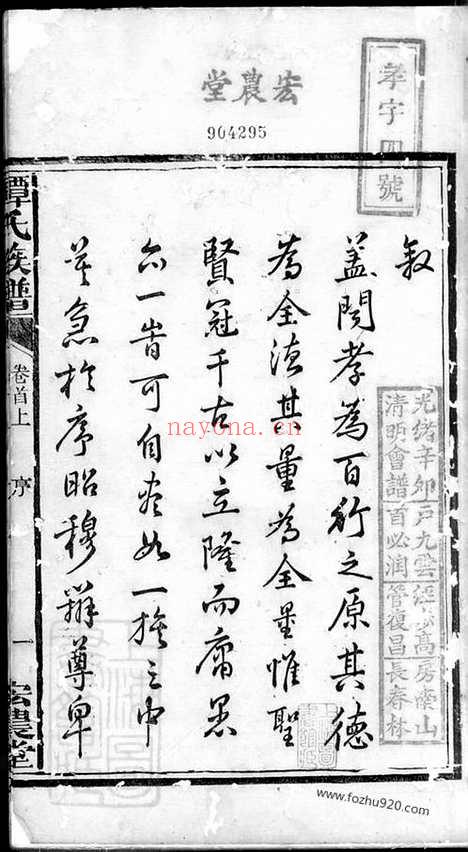 宏農堂
904295
孝字四號
敘
蓋聞孝為百行之原其德
為全德其量為全量惟聖
賢冠千古以立隆而庸愚
亦一皆可自盡如一族之中
莫急於序昭穆辨尊卑
光緒辛卯
清明會譜
首必润管復昌長春林
譚氏族譜
卷首上
序
一
宏農堂
nayona.cn
www.fozhu920.com